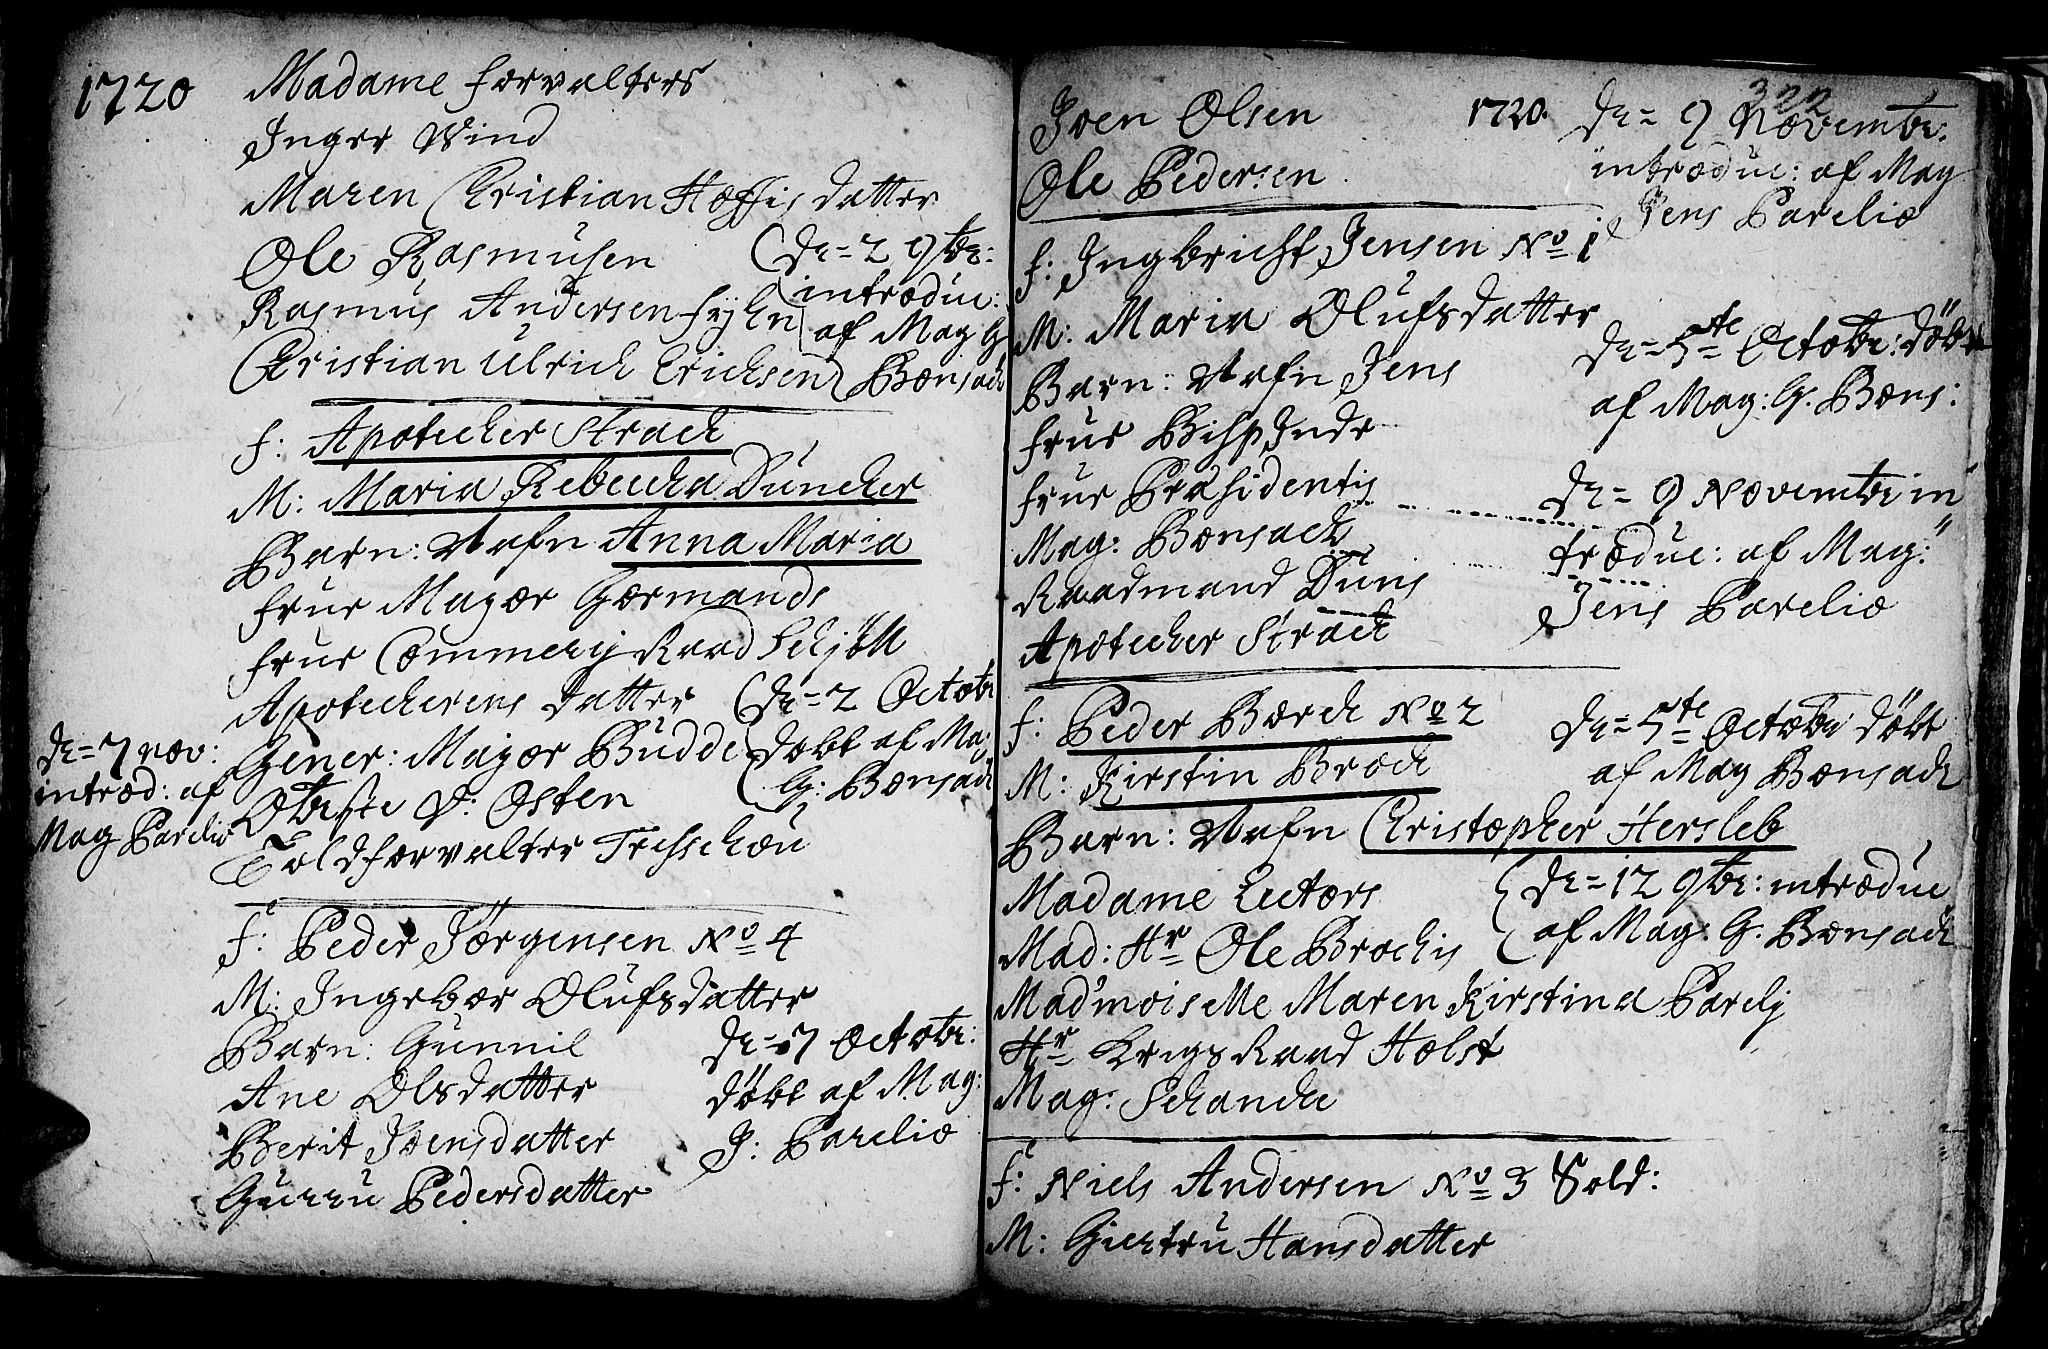 1720
Madame forvalters
Inger Wind
Maren Christian Hoffis datter
Ole Rasmusen
Rasmus Andersen fyhn
Christian Ulrich Erichsen
de= 2 9br:
introduc:
af Mag G
Bonsach
f: Apotecher Strach
M: Maria Rebecha Duncher
Barn: Nafn Anna Maria
frue Major Gormands
frue Commercij Raad Schjøll
Apotecherens datter
Gener: Major Budde
Obrste v: Osten
Toldforvalter Treschou
de= 2 Octobr
døbt af Ma:
G: Bonsach
de= 7 nov:
introd: af
Mag Parelio
f: Peder Jørgensen No 4
M: Ingebor Olufsdatter
Barn: Gunnil
Ane Olsdatter
Berit Joensdatter
Gurru Pedersdatter
de= 7 Octobr:
døbt af Mag:
J: Parelio
322
1720.
Joen Olsen
Ole Pedersen
de= 9 Novembr:
introduc: af Mag
Jens Parelio
f: Ingbricht Jensen No 1
M: Maria Olufsdatter
Barn: Nafn Jens
frue Bisp Inde
frue Præsidentis
Mag: Bonsach
Raadmand Duus
Apotecher Strach
de= 5te Octobr: døbt
af Mag: G. Bons:
de= 9 Novembr in
troduc: af Mag:
Jens Parelio
f: Peder Borch No 2
M: Kirstin Broch
Barn: Nafn Christopher Hersleb
Madame Lectors
Mad: Hr Ole Brochis
Mad'moiselle Maren Kirstina Parelij
Hr Krigs Raad Holst
Mag: Schanche
de= 5te Octobr døbt
af Mag Bonsach
de= 12 9br: introduc
af Mag: G. Bonsach
f: Niels Andersen No 3 Sold:
M: Giertru Hansdatter